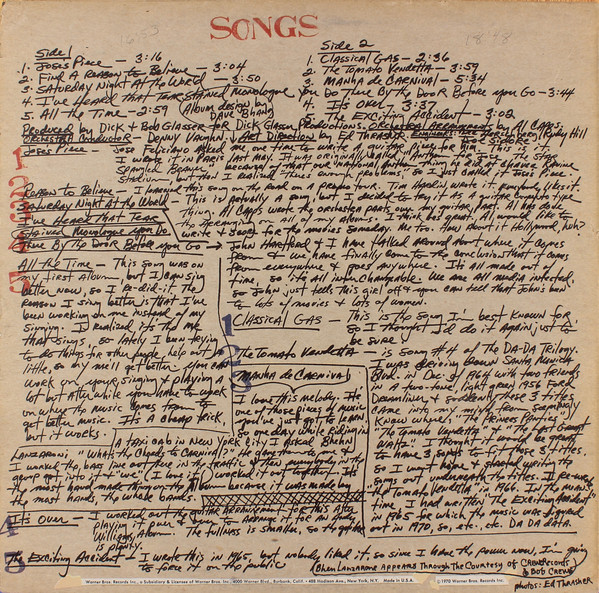 SONGS
Side 1
1. Joses Piece — 3:16
2. Find A Reason to Believe — 3:04
3. Saturday Night At the World — 3:50
4. I've Heard That Tear Stained Monologue You Do There By the Door Before you Go — 3:44
5. All the Time — 2:59 (Album design by Dave Bhang)
Side 2
1. Classical Gas — 2:36
2. The Tomato Vendetta — 3:59
3. Manha de Carnival — 5:34
4. Its Over — 3:37
5. The Exciting Accident — 3:02
Produced by Dick & Bob Glasser for Dick Glaser Productions. Orchestral Arrangements by Al Capps.
Orchestral Conductor — Denny Vaughn / Art Direction Ed Thrasher
Joses Piece — Jose Feliciano asked me one time to write a guitar piece for him
I wrote it in Paris last May. It was originally called Anthem for Jose
Spangled Brava
Stadium — then I realized theres enough problems, so I just called it Joses Piece.
Reason to Believe — I learned this song on the road on a promo tour. Tim Hardin wrote it. Everybody likes it.
Saturday Night At the World — This is actually a song, but I decided to play it as a guitar trumpet type
thing. Al Capps wrote the orchestra parts over my guitar part. Al has done
the arrangements on all of my albums. I think hes great. Al would like to
write songs for the movies someday. Me too. How about it Hollywood, heh?
I've Heard That Tear
Stained Monologue You Do
There By the Door Before you Go → John Hartford & I have talked around about where it comes
from & we have finally come to the conclusion that it comes
from everywhere & goes any where. Its all made out of
time, so its all interchangeable. We are all media infested,
so John just tells this girl off & you can tell that John's been
to lots of movies & lots of women.
All the Time — This song was on
my first album, but I can sing
better now, so I re-did it. The
reason I sing better is that I've
been working on me instead of my
singing. I realized its the me
that sings, so lately I been trying
to do things for other people, help out a
little, so my me'll get better. You can
work on your singing & playing a
lot but after while you have to work
on where the music comes from to
get better music. It's a cheap trick,
but it works.
Classical Gas — This is the song I'm best known for
so I thought I'd do it again just to
be sure.
The Tomato Vendetta — is Song #4 of the DA-DA Trilogy.
I was driving down Santa Monica
Blvd. in Dec. of 1964 with two friends
in a two-tone, light green 1956 Ford
& suddenly these 3 titles
came into my mind from seemingly
know where; "The Princes Panties,"
"The Tomato Vendetta" &
Waltz." I thought it would be great
to have 3 songs to fit those 3 titles.
So I went home & started writing the
songs out underneath the titles. I
the Tomato Vendetta in 1966. In the mean
time I had written "The Exciting Accident"
in 1965 — for which the music was figured
out in 1970, so, etc. etc. DA DA DATA.
Manha de Carnival
I love this melody. Its
one of those pieces of music
you've just got to learn
so one day while riding in
a taxi cab in New York City I asked Bhen
Lanzaroni "Whats the Chords to Carnival?" He gave them to me &
I worked the bass line out there in the traffic &
got into it.
the most hand made thing on the album because it was made by
the most hands, the whole bands.
It's Over — I worked out the guitar arrangement for this after
playing it over & over to arrange it for an Andy
Williams Album. The fullness is smaller, so the guitar
is plenty.
The Exciting Accident — I wrote this in 1965, but nobody liked it, so since I have the power now, I'm going
to force it on the public
(Bhen Lanzaroni Appears Through The Courtesy of Crewe Records & Bob Crewe)
photos: Ed Thrasher
Warner Bros. Records Inc., a Subsidiary & Licensee of Warner Bros. Inc., 4000 Warner Blvd., Burbank, Calif. • 488 Madison Ave., New York, N.Y. Made in U.S.A. ©1970 Warner Bros. Records Inc.